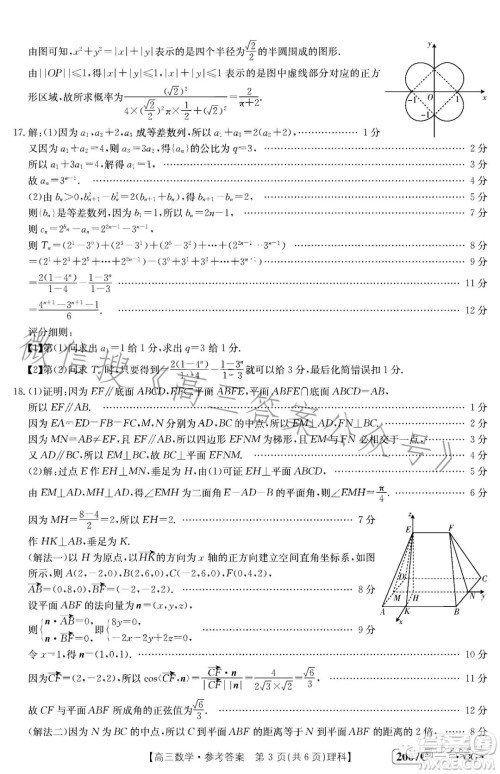 由图可知，x²+y²=|x|+|y|表示的是四个半径为√2/2的半圆围成的图形.
由||OP||≤1，得|x|+|y|≤1，|x|+|y|≤1表示的是图中虚线部分对应的正方
形区域，故所求概率为(√2)²/(4×(√2/2)²π×1/2+(√2)²)=2/(π+2).
y
-1 O 1 x
-1
17.解：(1)因为a₁，a₂+2，a₃成等差数列，所以a₁+a₃=2(a₂+2)，……1分
又因为a₁+a₂=4，则a₃=3a₂，得{aₙ}的公比为q=3. ……2分
所以a₁+3a₁=4，解得a₁=1，……3分
故aₙ=3ⁿ⁻¹. ……4分
(2)由bₙ>0，
……5分
则{bₙ}是等差数列，因为b₁=1，所以bₙ=2n-1，……7分
……8分
……9分
=2(1-4ⁿ)/(1-4)-(1-3ⁿ)/(1-3) ……11分
=(4ⁿ⁺¹-3ⁿ⁺¹-1)/6. ……12分
评分细则：
【1】第(1)问求出a₁给1分，求出q给1分.
【2】第(2)问求Tₙ时，只要得到2(1-4ⁿ)/(1-4)-(1-3ⁿ)/(1-3)就可以给3分，最后化简错误扣1分.
18.(1)证明：因为EF∥底面ABCD，EF⊂平面ABFE，平面ABFE∩底面ABCD=AB，
所以EF∥AB. ……1分
因为EA=ED=FB=FC，M，N分别为AD，BC的中点，所以EM⊥AD，FN⊥BC. ……2分
因为MN=AB≠EF，且EF∥AB，所以四边形EFNM为梯形，且EM与FN必相交于一点，……3分
又AD∥BC，所以EM⊥BC，故BC⊥平面EFNM. ……4分
(2)解：过点E作EH⊥MN，垂足为H，由(1)知平面EFNM⊥平面ABCD，……5分
由EM⊥AD，MH⊥AD，得∠EMH为二面角E-AD-B的平面角，则∠EMH=π/4. ……6分
因为MH=(8-4)/2=2，所以EH=2. ……7分
作HK⊥AB，垂足为K.
(解法一)以H为原点，以HK的方向为x轴的正方向建立空间直角坐标系，如图
所示，则A(2,-2,0)，B(2,6,0)，C(-2,6,0)，E(0,0,2)，F(0,4,2)，
AB=(0,8,0)，BF=(-2,-2,2). ……8分
设平面ABF的法向量为n=(x,y,z)，
则{n·AB=0，n·BF=0，即{8y=0，-2x-2y+2z=0. ……9分
令x=1，得n=(1,0,1). ……10分
因为CF=(2,-2,2)，所以cos⟨CF,n⟩=CF·n/(|CF||n|)=4/(2√3×√2)=√6/3，……11分
故CF与平面ABF所成角的正弦值为√6/3. ……12分
z
E F
D C
M H N y
A K B
x
(解法二)
……8分
【高三数学·参考答案 第3页(共6页)理科】
微信搜《高三答案公众号》